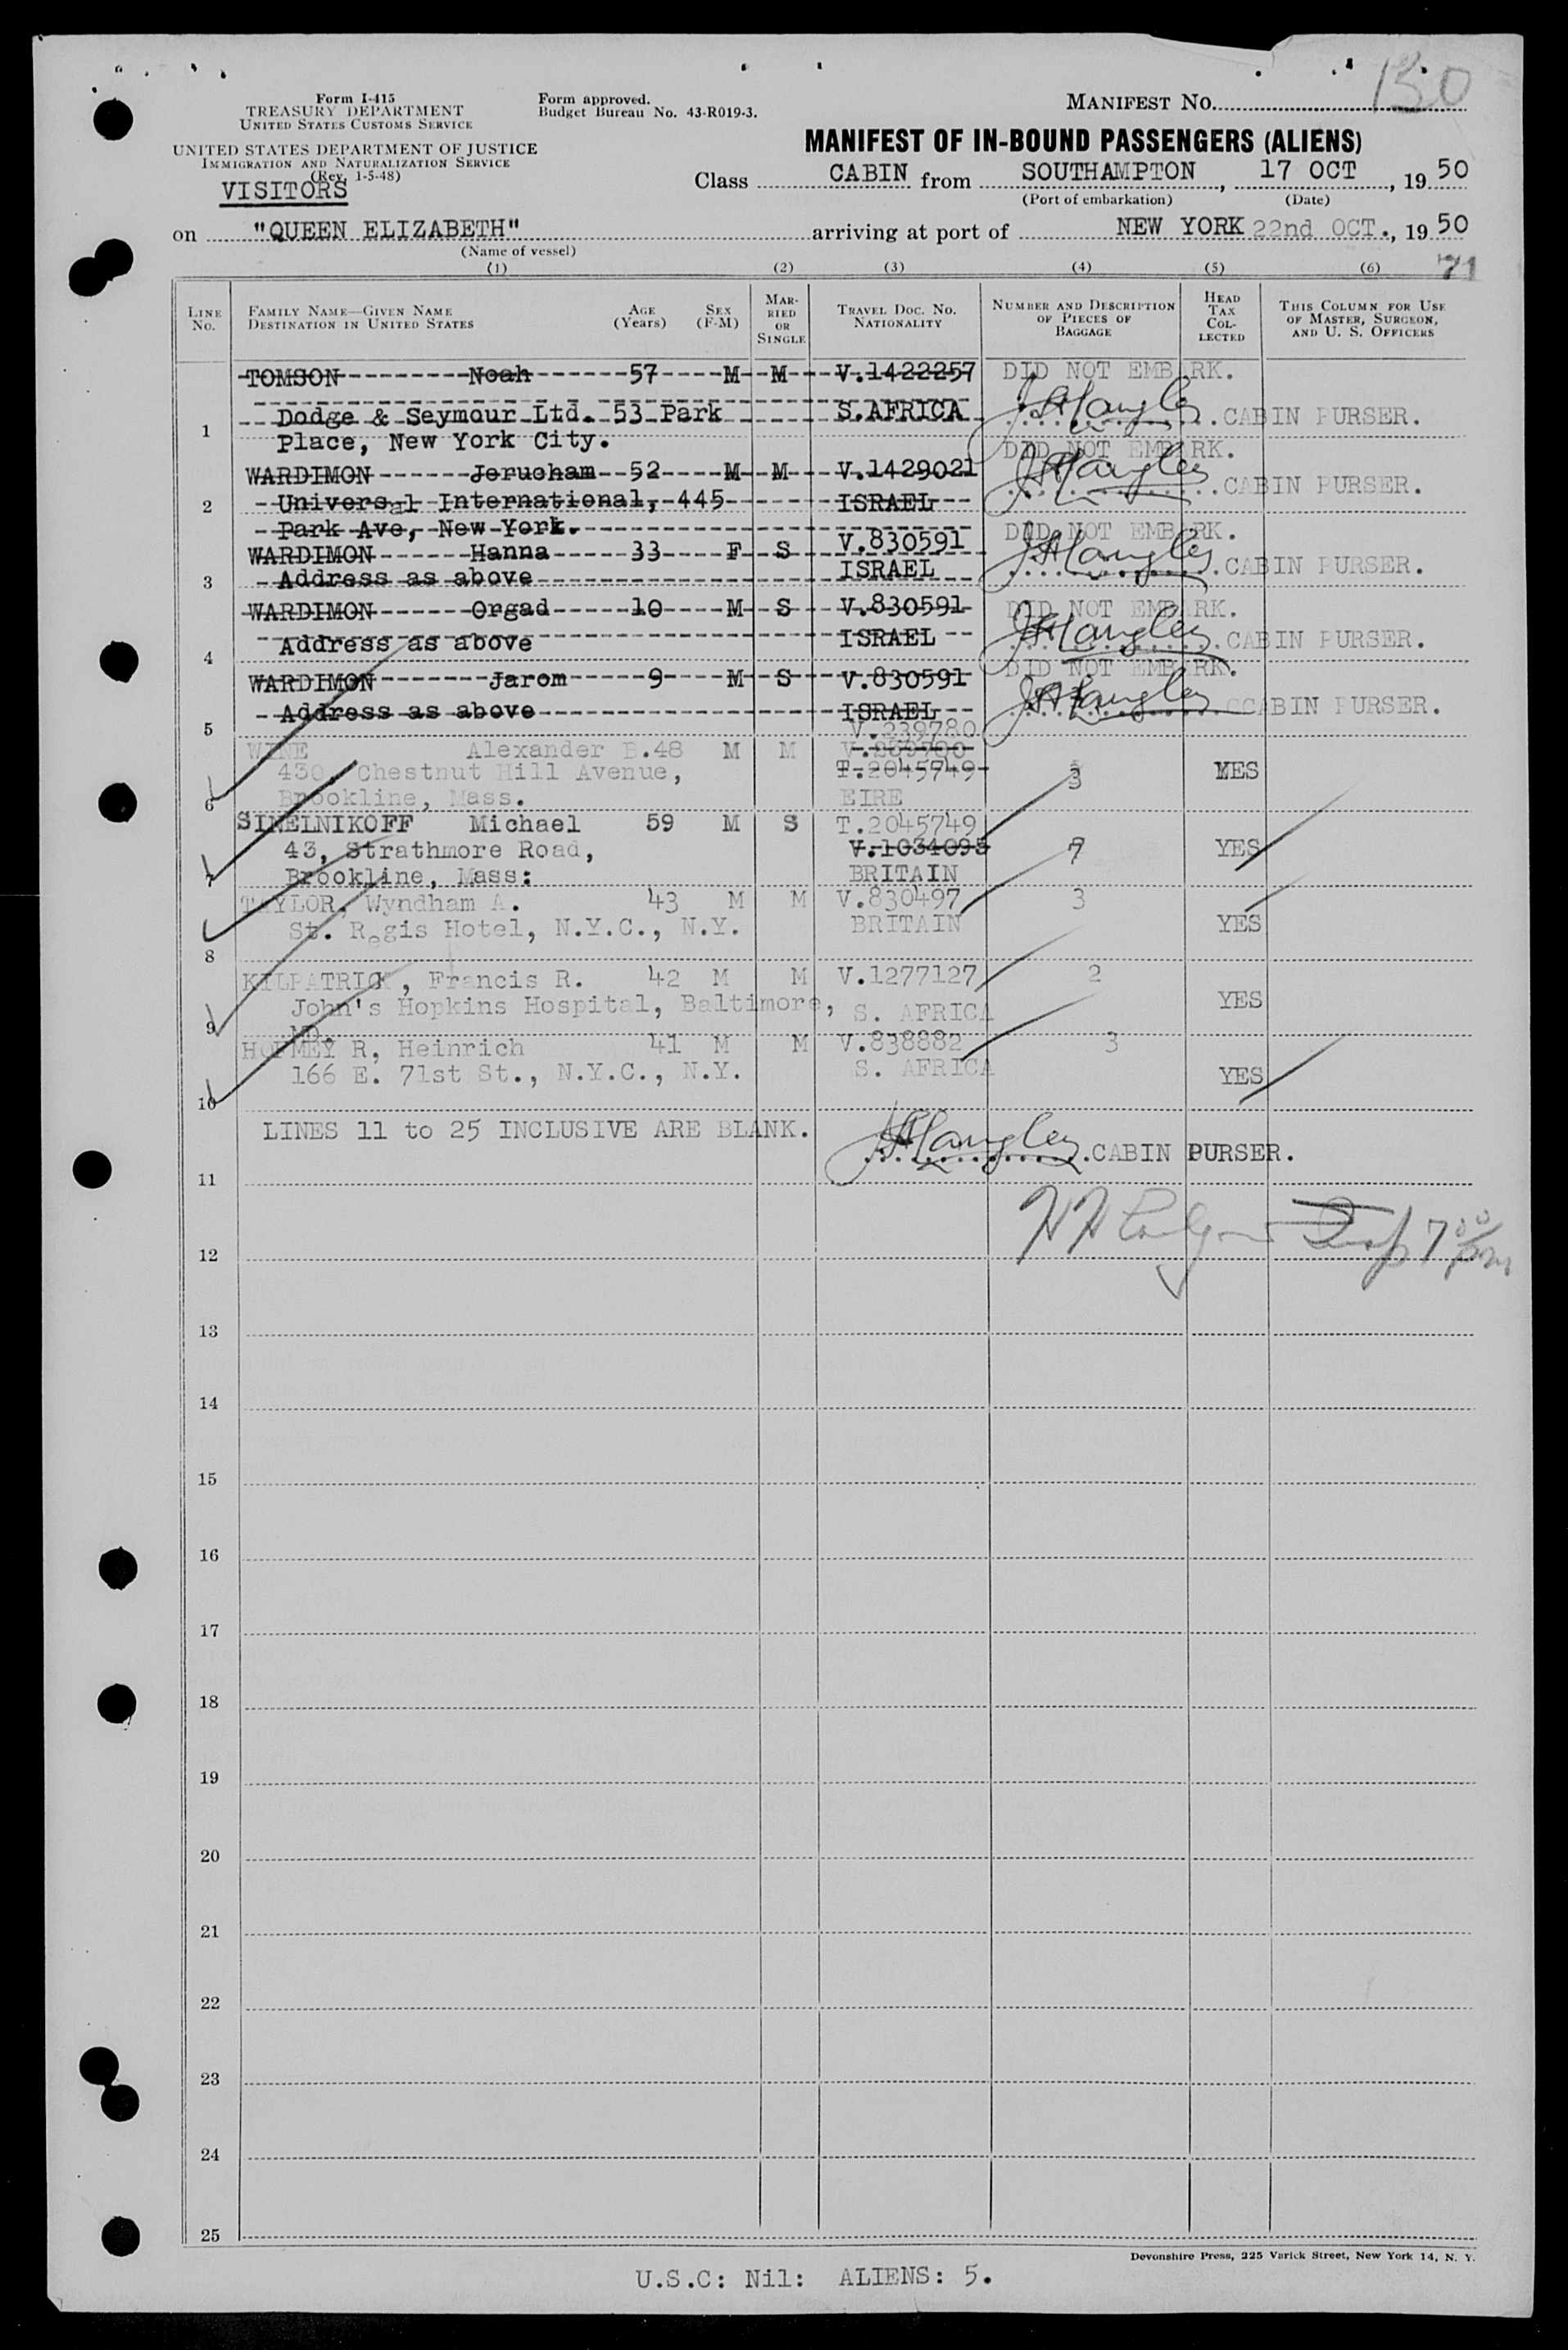 Form I-415
TREASURY DEPARTMENT
UNITED STATES CUSTOMS SERVICE
UNITED STATES DEPARTMENT OF JUSTICE
IMMIGRATION AND NATURALIZATION SERVICE
(Rev. 1-5-48)
VISITORS
Form approved.
Budget Bureau No. 43-R019-3.
MANIFEST No. 150
MANIFEST OF IN-BOUND PASSENGERS (ALIENS)
Class CABIN from SOUTHAMPTON, 17 OCT, 19 50
(Port of embarkation) (Date)
on "QUEEN ELIZABETH" arriving at port of NEW YORK 22nd OCT., 19 50
(Name of vessel)
(1) (2) (3) (4) (5) (6) 71
LINE No.
FAMILY NAME—GIVEN NAME DESTINATION IN UNITED STATES
AGE (Years)
SEX (F-M)
MARRIED OR SINGLE
TRAVEL DOC. NO. NATIONALITY
NUMBER AND DESCRIPTION OF PIECES OF BAGGAGE
HEAD TAX COLLECTED
THIS COLUMN FOR USE OF MASTER, SURGEON, AND U. S. OFFICERS
TOMSON Noah 57 M M V.1422257 DID NOT EMBARK.
Dodge & Seymour Ltd. 53 Park S.AFRICA CABIN PURSER.
1 Place, New York City.
WARDIMON Jerucham 52 M M V.1429021 DID NOT EMBARK.
2 Universal International, 445 ISRAEL CABIN PURSER.
Park Ave, New York.
WARDIMON Hanna 33 F S V.830591 DID NOT EMBARK.
3 Address as above ISRAEL CABIN PURSER.
WARDIMON Orgad 10 M S V.830591 DID NOT EMBARK.
4 Address as above ISRAEL CABIN PURSER.
WARDIMON Jarom 9 M S V.830591 DID NOT EMBARK.
5 Address as above ISRAEL CCABIN PURSER.
V.239780
WINE Alexander B. 48 M M
430, Chestnut Hill Avenue, T.2045749 3 YES
6 Brookline, Mass. EIRE
SINELNIKOFF Michael 59 M S T.2045749
43, Strathmore Road, V.1034093 7 YES
7 Brookline, Mass: BRITAIN
TAYLOR, Wyndham A. 43 M M V.830497 3
St. Regis Hotel, N.Y.C., N.Y. BRITAIN YES
8
KILPATRICK, Francis R. 42 M M V.1277127 2
John's Hopkins Hospital, Baltimore, S. AFRICA YES
9 MD.
HOFMEY R, Heinrich 41 M M V.838882 3
166 E. 71st St., N.Y.C., N.Y. S. AFRICA YES
10
LINES 11 to 25 INCLUSIVE ARE BLANK.
JALangley CABIN PURSER.
11
12 7 00 pm
13
14
15
16
17
18
19
20
21
22
23
24
25
Devonshire Press, 225 Varick Street, New York 14, N. Y.
U.S.C: Nil: ALIENS: 5.